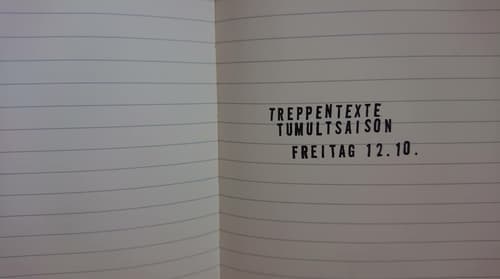 TREPPENTEXTE
TUMULTSAISON
FREITAG 12.10.